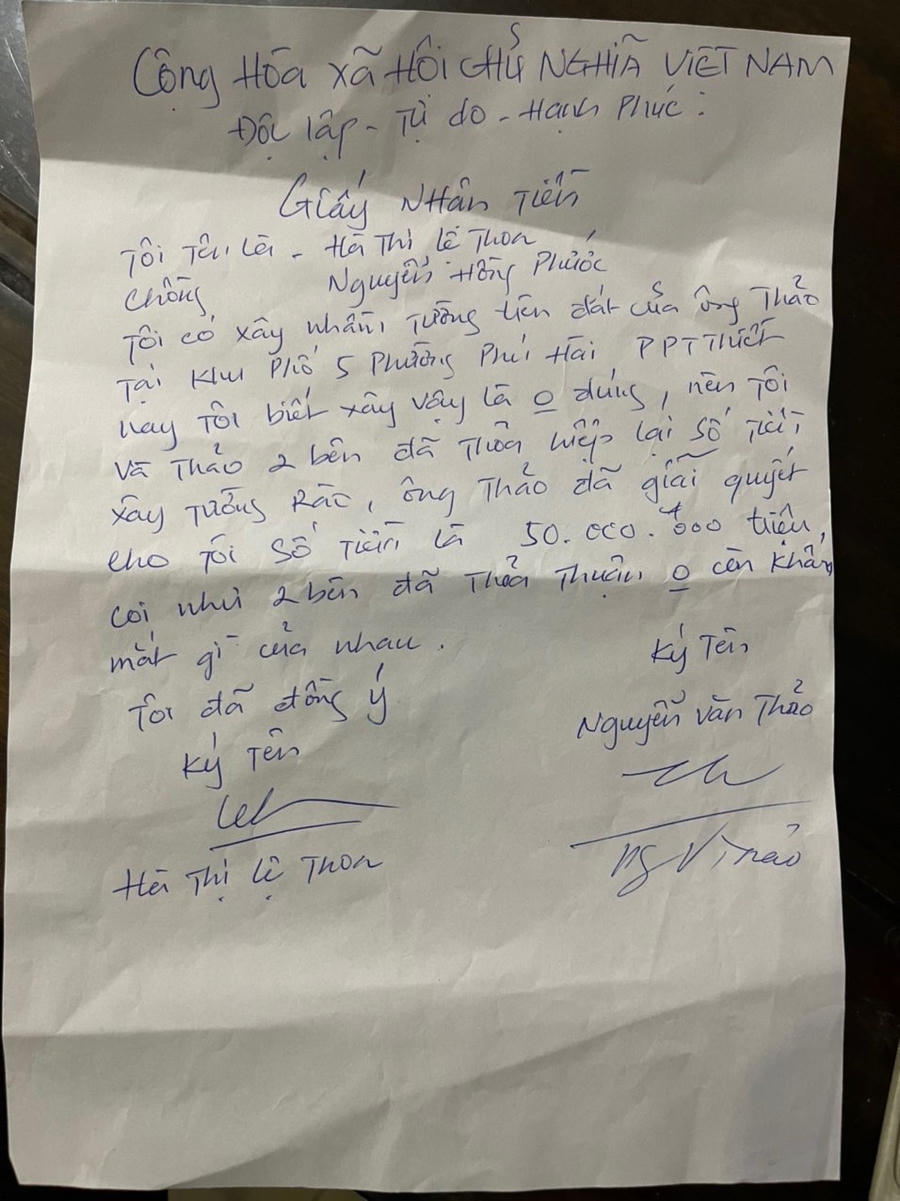 Cộng Hòa xã Hội CHỦ NGHĨA VIỆT NAM
Độc lập - Tự do - Hạnh Phúc :
Giấy NHận Tiền
Tôi Tên là - Hà Thị Lệ Thoa
Chồng Nguyễn Hồng Phước
Tôi có xây nhầm Tường trên đất của ông Thảo
Tại Khu Phố 5 Phường Phú Hài PPTThiết
nay Tôi biết xây vậy là O đúng, nên Tôi
và Thảo 2 bên đã Thỏa hiệp lại số Tiền
xây Tường Rào, ông Thảo đã giải quyết
cho Tôi số Tiền là 50.000.000 triệu,
coi như 2 bên đã Thỏa Thuận O còn khấn
mắt gì của nhau.
Tôi đã đồng ý
Ký Tên
Hà Thị Lệ Thoa
Ký Tên
Nguyễn Văn Thảo